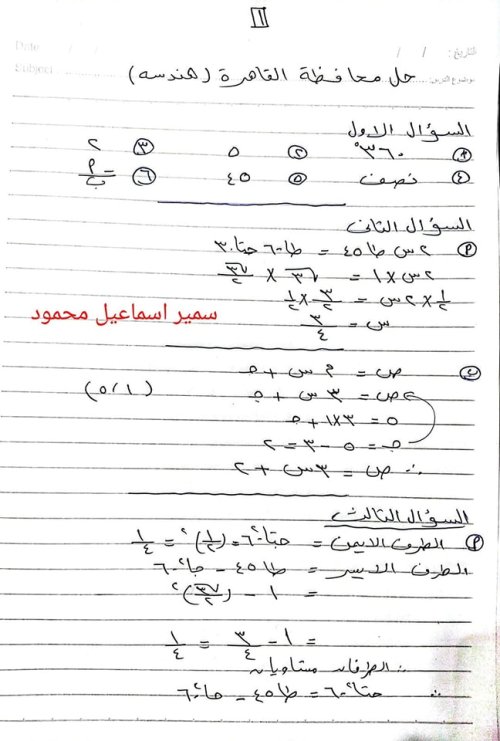 [١]
Date التاريخ: / /
Subject موضوع الدرس:
حل محافظة القاهرة (هندسه)
السؤال الاول
١ ٣٦٠° ٢ ٥ ٣ ٢
٤ نصف ٥ ٤٥ ٦ -م/ب
السؤال الثانى
٢ س طا ٤٥ = طا ٦٠ حتا ٣٠
٢ س × ١ = √٣ × √٣/٢
١/٢ × ٢ س = ٣/٢ × ١/٢
س = ٣/٤
سمير اسماعيل محمود
ب ص = م س + جـ
ص = ٣ س + جـ (١، ٥)
٥ = ٣ × ١ + جـ
جـ = ٥ - ٣ = ٢
∴ ص = ٣ س + ٢
السؤال الثالث
الطرف الايمن = حتا²٦٠ = (١/٢)² = ١/٤
الطرف الايسر = طا ٤٥ - حا²٦٠
= ١ - (√٣/٢)²
= ١ - ٣/٤ = ١/٤
∴ الطرفان متساويان
∴ حتا²٦٠ = طا ٤٥ - حا²٦٠